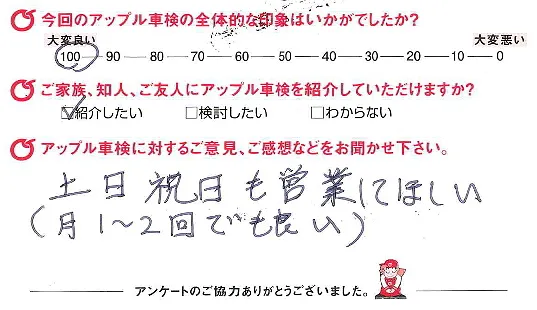 今回のアップル車検の全体的な印象はいかがでしたか?
大変良い 大変悪い
100 90 80 70 60 50 40 30 20 10 0
ご家族、知人、ご友人にアップル車検を紹介していただけますか?
☑紹介したい □検討したい □わからない
アップル車検に対するご意見、ご感想などをお聞かせ下さい。
土日祝日も営業してほしい
(月1~2回でも良い)
アンケートのご協力ありがとうございました。